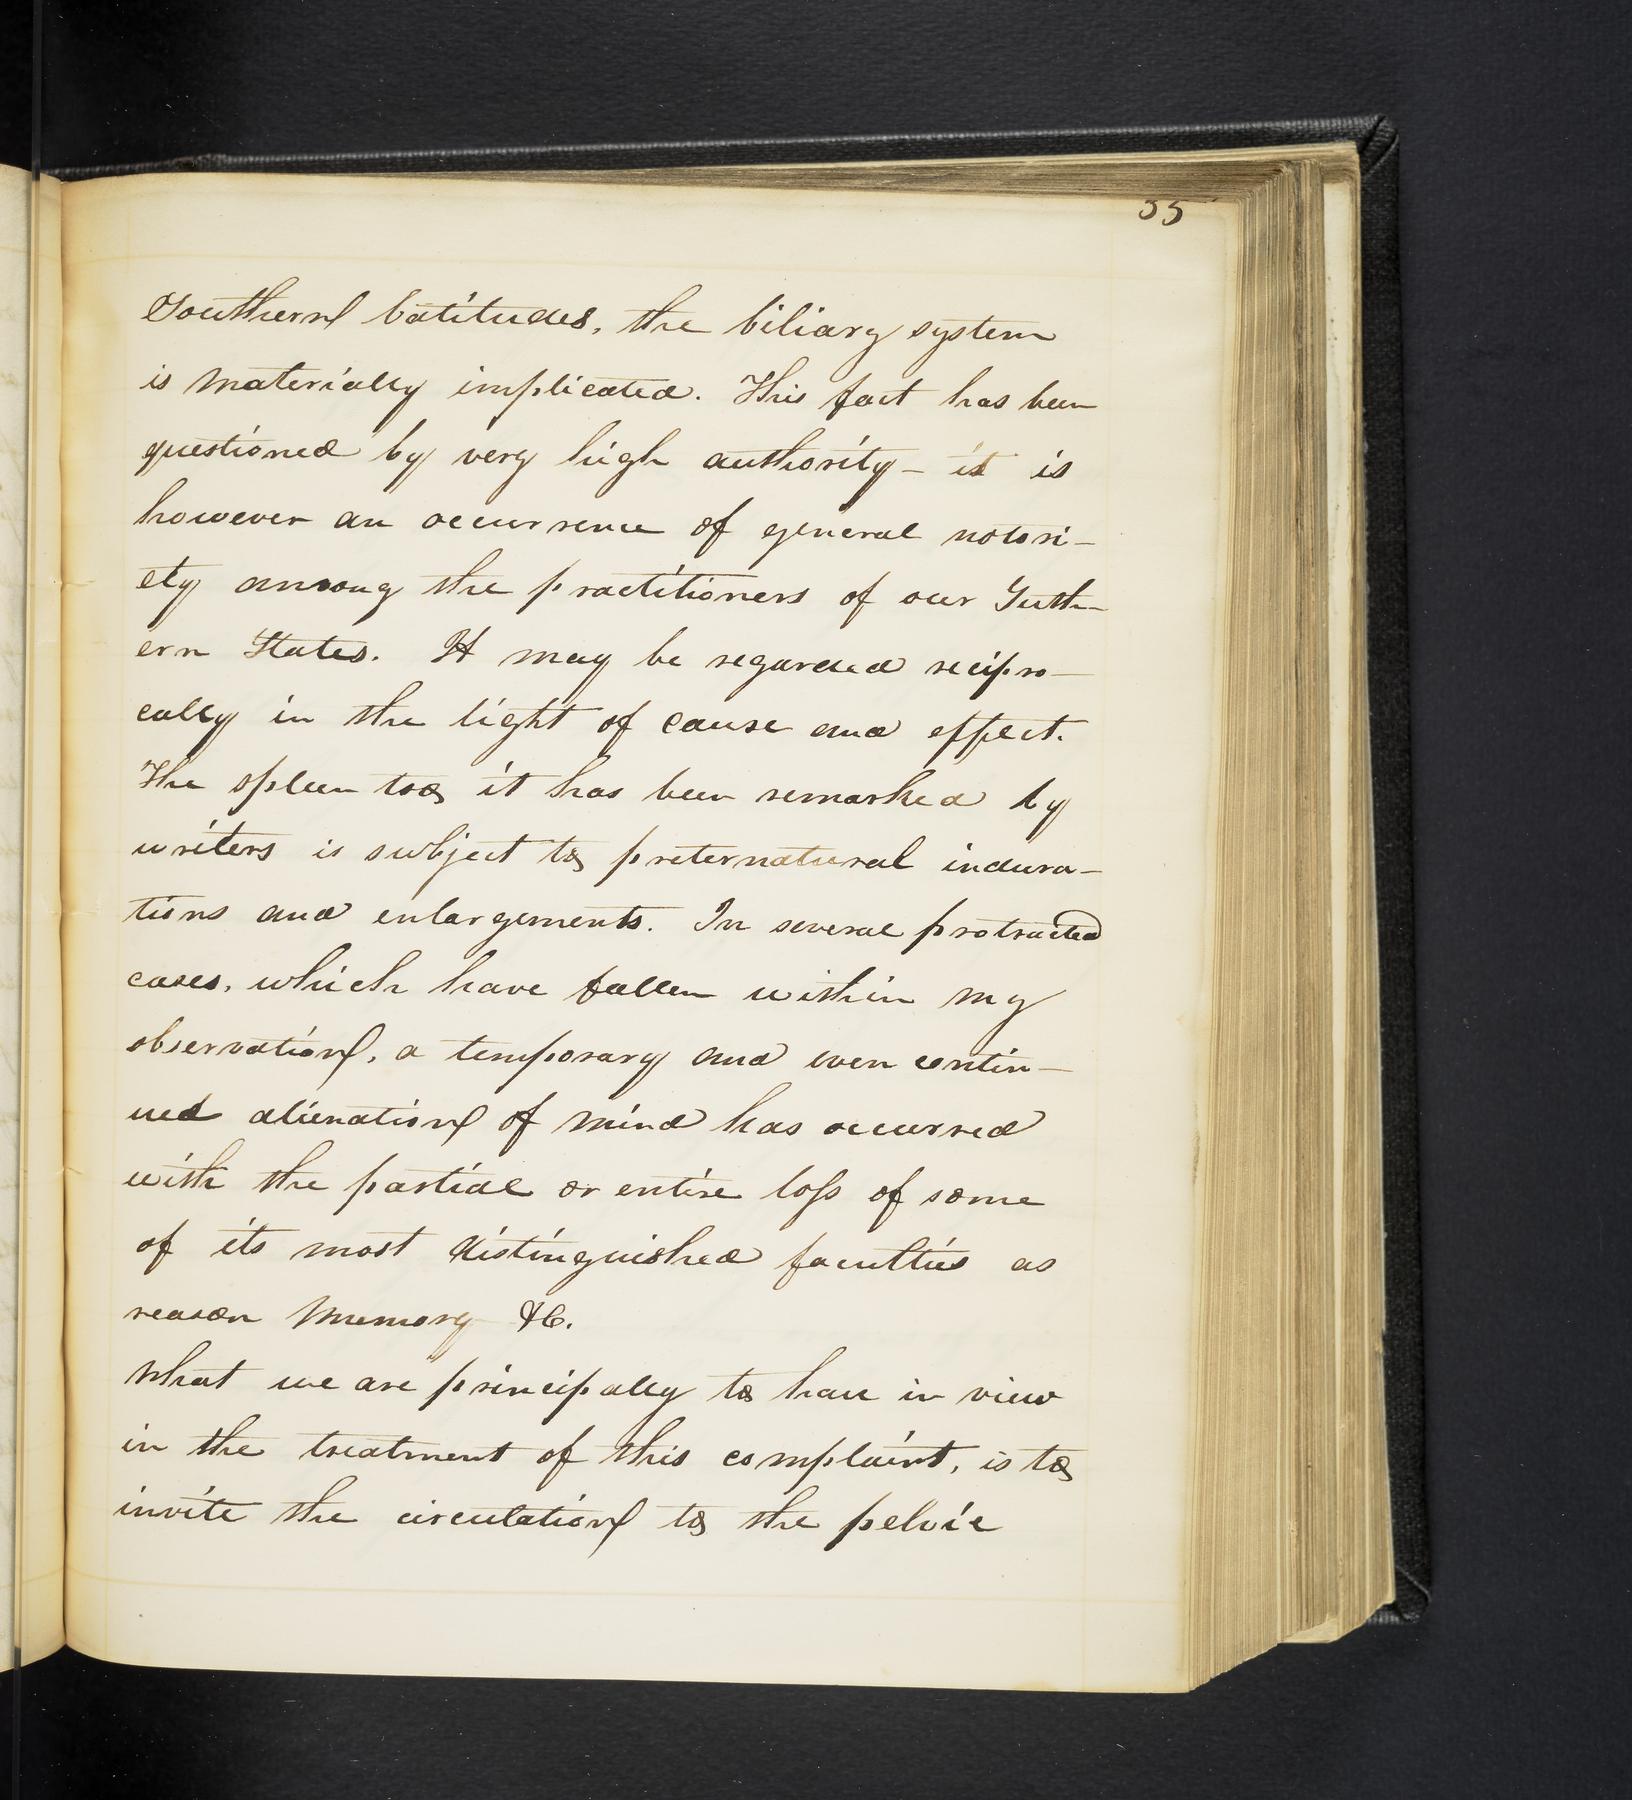 55
Southern Latitudes, the biliary system
is materially implicated. This fact has been
questioned by very high authority - it is
however an occurrence of general notori-
ety among the practitioners of our South-
ern States. It may be regarded recipro-
cally in the light of cause and effect.
The spleen too it has been remarked by
writers is subject to preternatural indura-
tions and enlargements. In several protracted
cases, which have fallen within my
observation, a temporary and even contin-
ued alienation of mind has occurred
with the partial or entire loss of some
of its most distinguished faculties as
reason memory &c.
What we are principally to have in view
in the treatment of this complaint, is to
invite the circulation to the pelvic